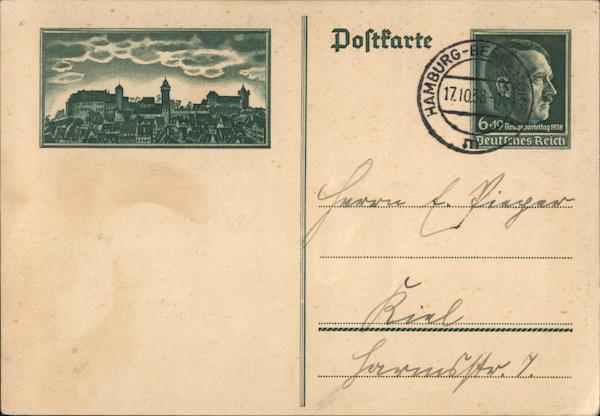 Postkarte
HAMBURG-BE
17.10.38
m
6+19 Reichsparteitag 1938
Deutsches Reich
Herrn E. Pieper
Kiel
Harmsstr. 7.